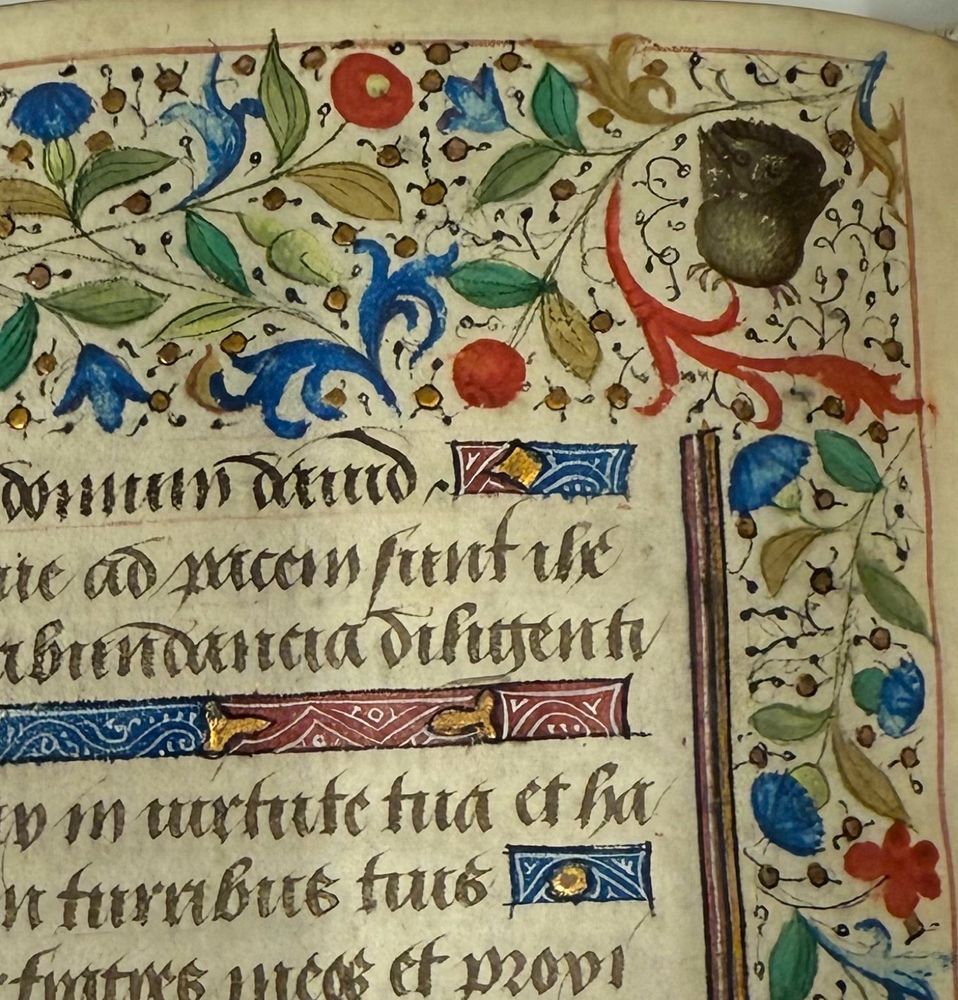 domum dauid
ad pacem sunt ihr
abundancia diligenti
in uirtute tua et ha
turribus tuis
fratres meos et proxi